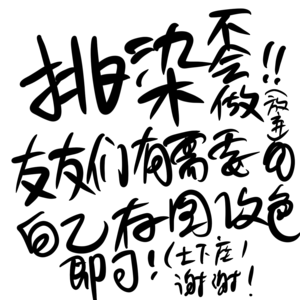 挑染不会做!!(放弃)
友友们有需要的
自己存图改色
即可!(土下座)
谢谢!